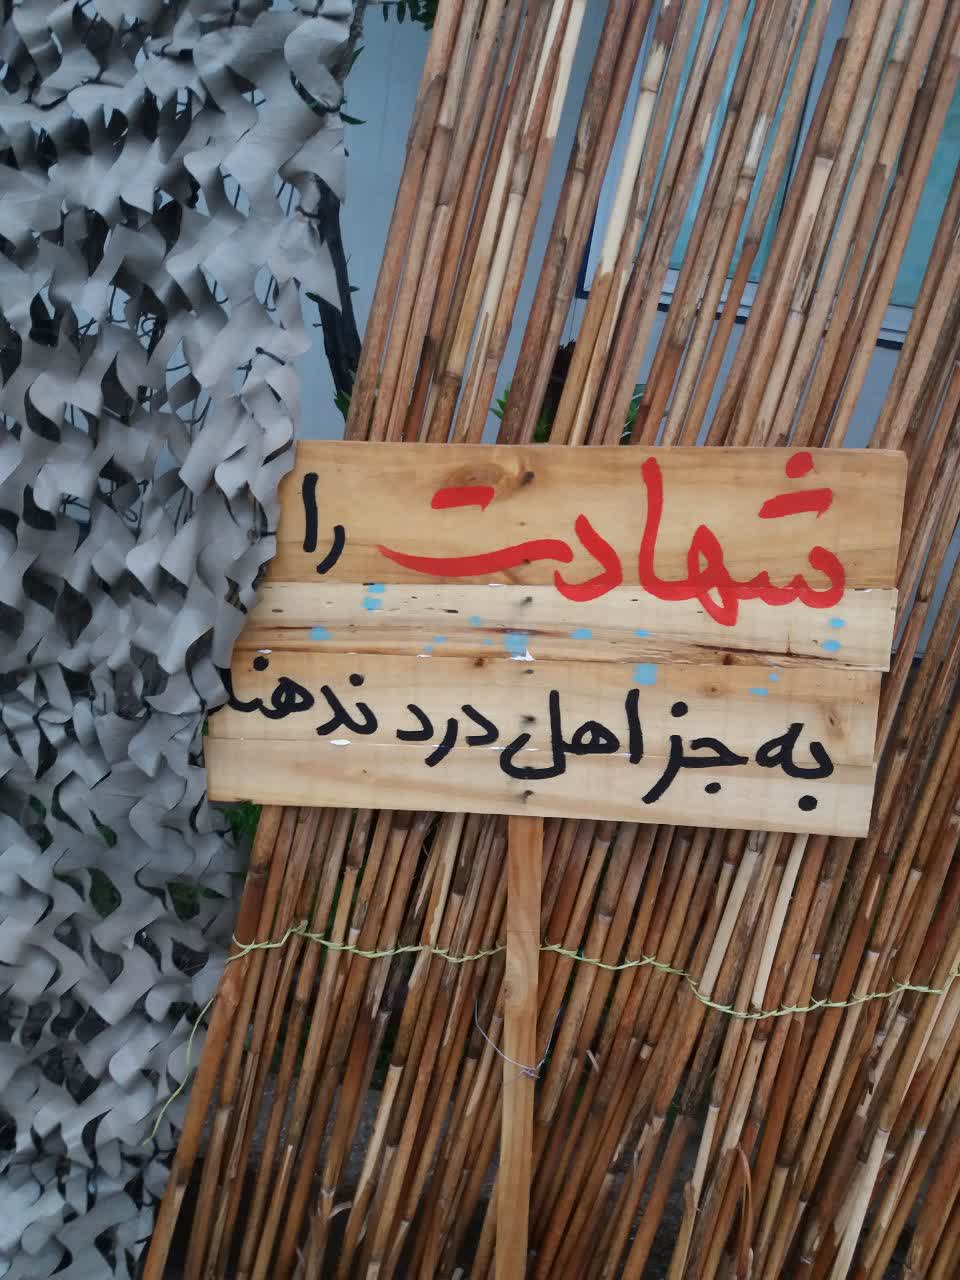 شهادت را
به جز اهل درد ندهند